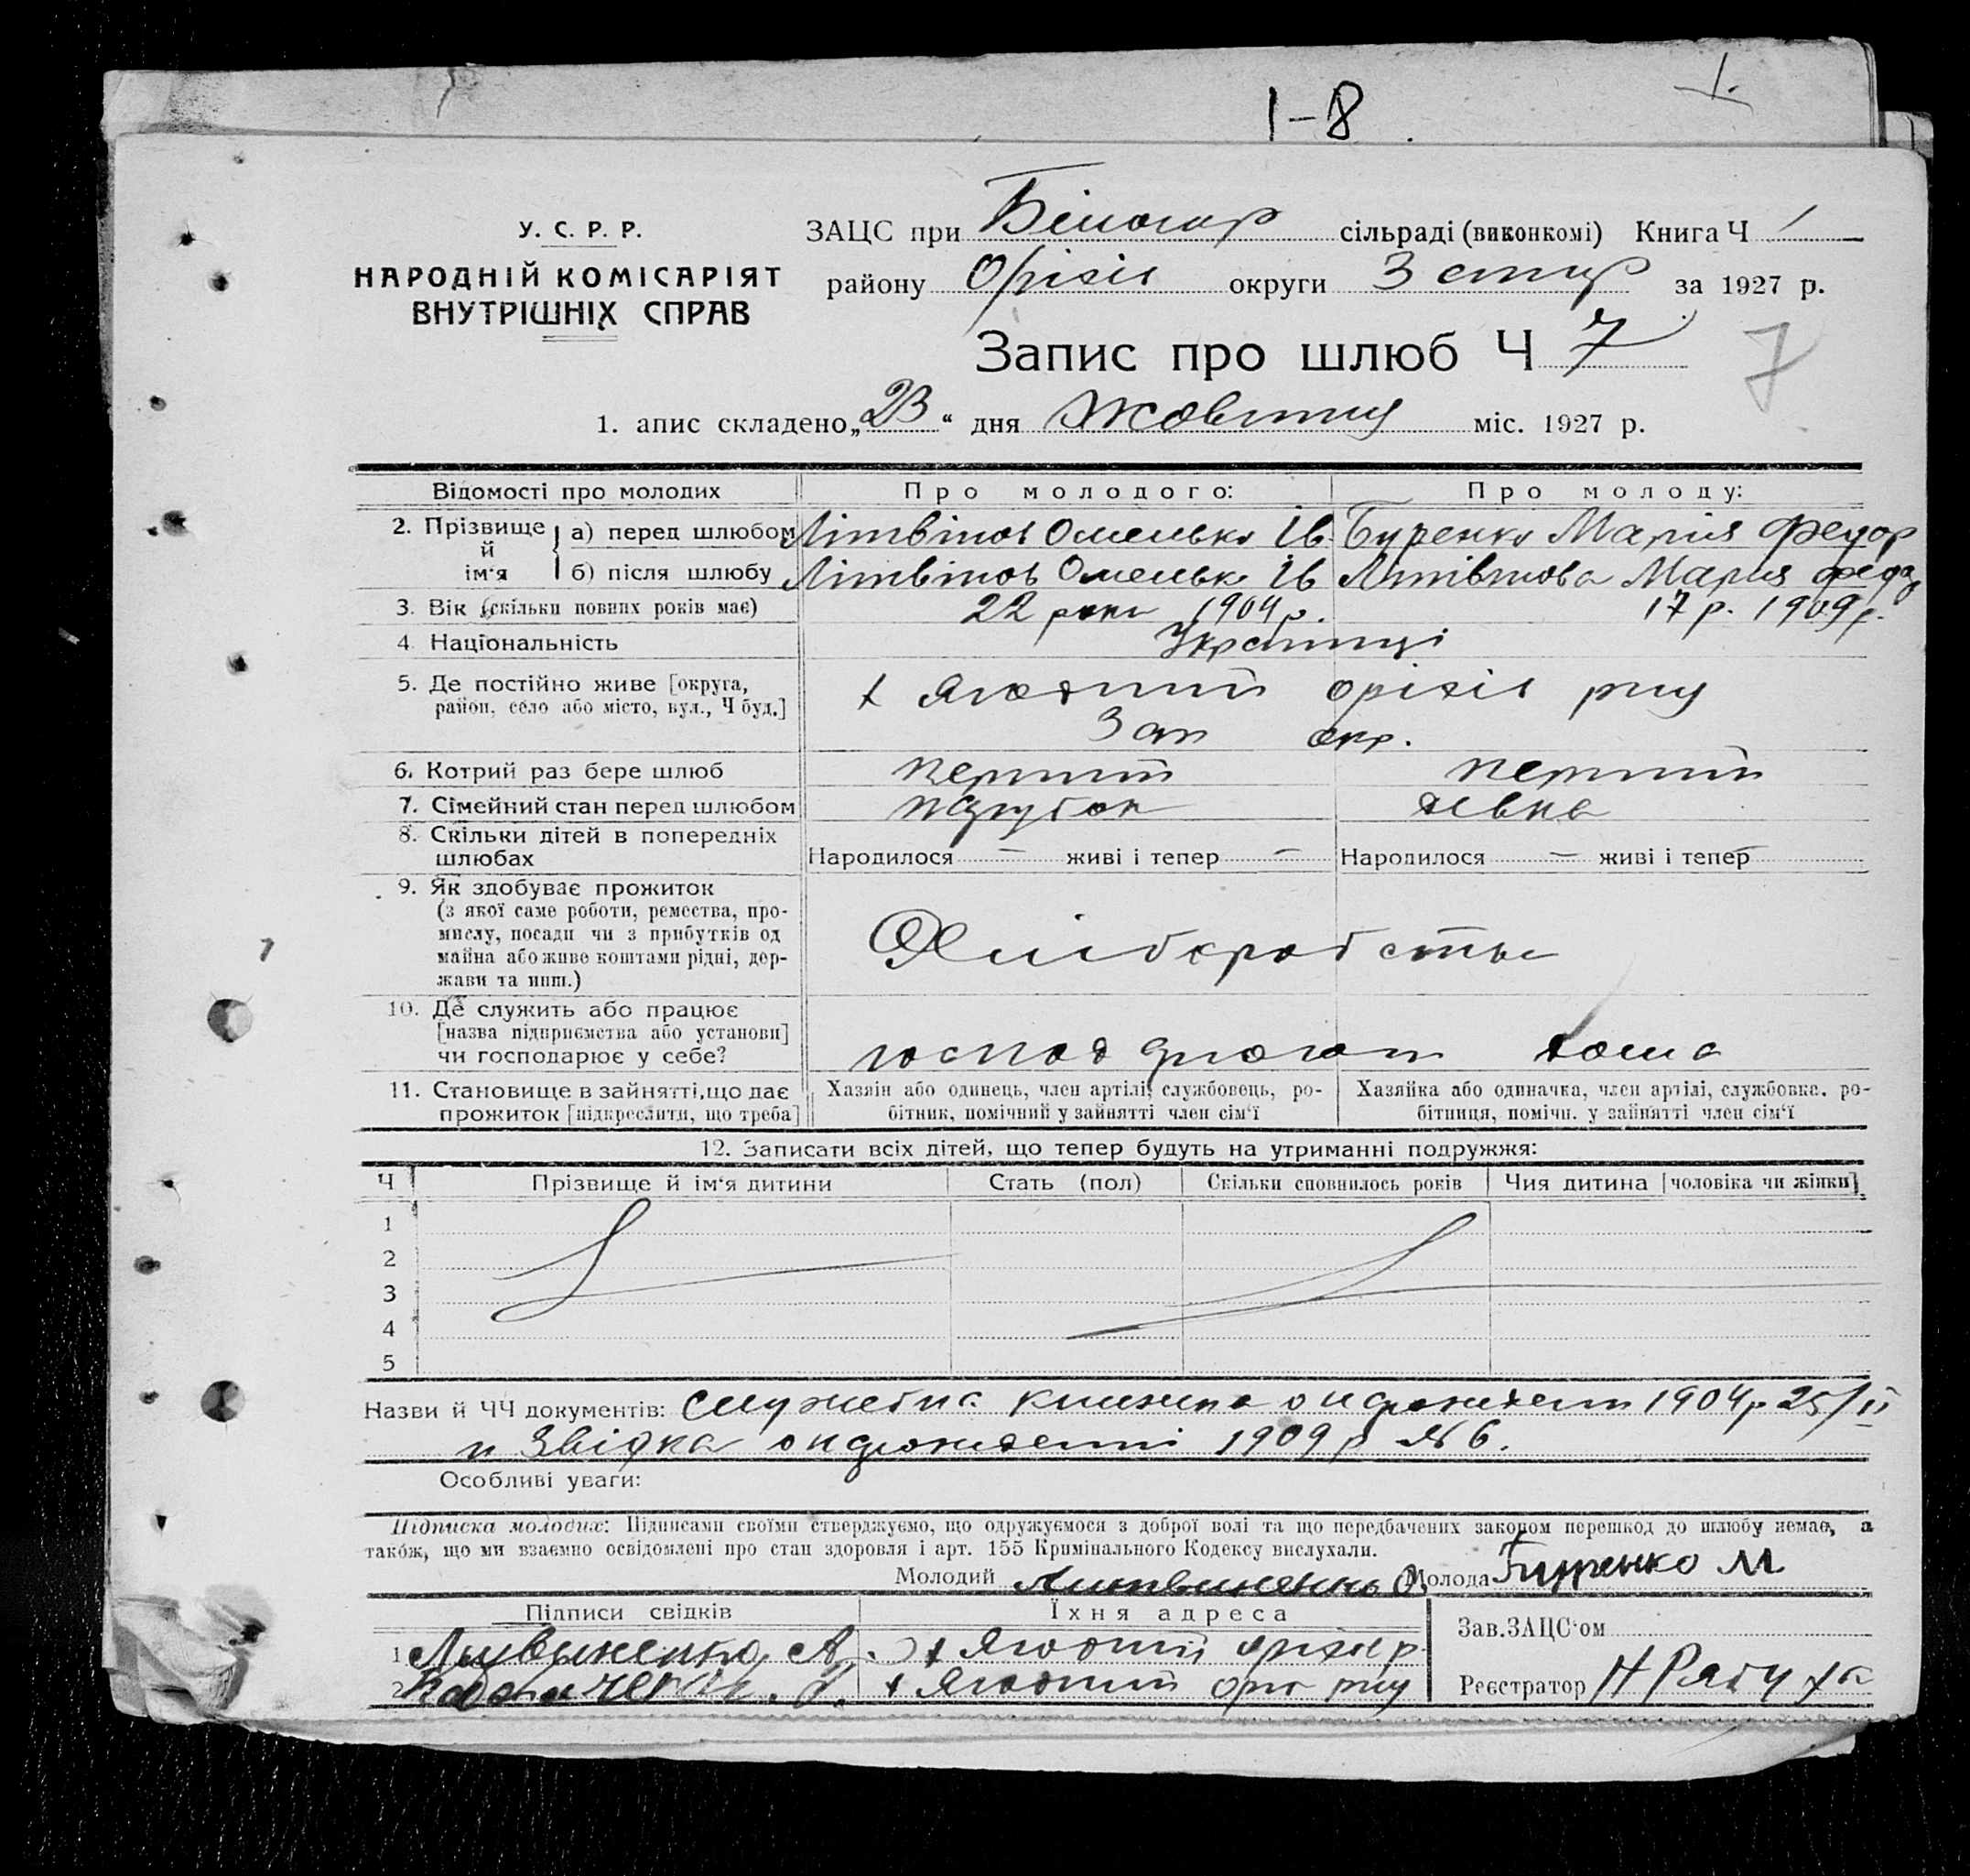 1-8
1.
У. С. Р. Р.
НАРОДНІЙ КОМІСАРІЯТ
ВНУТРІШНІХ СПРАВ
ЗАЦС при Білогор сільраді (виконкомі) Книга Ч 1
району Оріхів округи за 1927 р.
Запис про шлюб Ч 7
7
1. апис складено „23“ дня Жовтня міс. 1927 р.
Відомості про молодих Про молодого: Про молоду:
2. Прізвище й ім‘я
а) перед шлюбом Літвінов Омелько Ів Буренко Мария Федор
б) після шлюбу Літвінов Омелько Ів Літвінова Мария Федор
3. Вік (скільки повних років має) 22 роки 1904 р. 17 р. 1909 р.
4 Національність Українці
5. Де постійно живе [округа,
район, село або місто, вул., Ч буд.]
х Ягодний оріхів рну
Зап окр.
6. Котрий раз бере шлюб перший перший
7. Сімейний стан перед шлюбом парубок дівка
8. Скільки дітей в попередніх
шлюбах
Народилося — живі і тепер — Народилося — живі і тепер —
9. Як здобуває прожиток
(з якої саме роботи, ремества, про-
мислу, посади чи з прибутків од
майна або живе коштами рідні, дер-
жави та инш.)
Хліборобство
10. Де служить або працює
[назва підприємства або установи]
чи господарює у себе?
дома
11. Становище в зайнятті, що дає
прожиток [підкреслити, що треба]
Хазяїн або одинець, член артілі, службовець, ро-
бітник, помічний у зайнятті член сім‘ї
Хазяйка або одиначка, член артілі, службовка, ро-
бітниця, помічн. у зайнятті член сім‘ї
12. Записати всіх дітей, що тепер будуть на утриманні подружжя:
Ч Прізвище й ім‘я дитини Стать (пол) Скільки сповнилось років Чия дитина [чоловіка чи жінки]
1
2
3
4
5
Назви й ЧЧ документів: книжка о нарождении 1904 р 25/II
и Звідка о нарожденні 1909 р № 6.
Особливі уваги:
Підписка молодих: Підписами своїми стверджуємо, що одружуємося з доброї волі та що передбачених законом перешкод до шлюбу немає, а
також, що ми взаємно освідомлені про стан здоровля і арт. 155 Кримінального Кодексу вислухали.
Молодий Литвиненко О. Молода Буренко М
Підписи свідків Їхня адреса
1 Литвиненко А. х Ягодний оріхів р
2 х Ягодний оріх рну
Зав. ЗАЦС‘ом
Реєстратор Н Рябуха